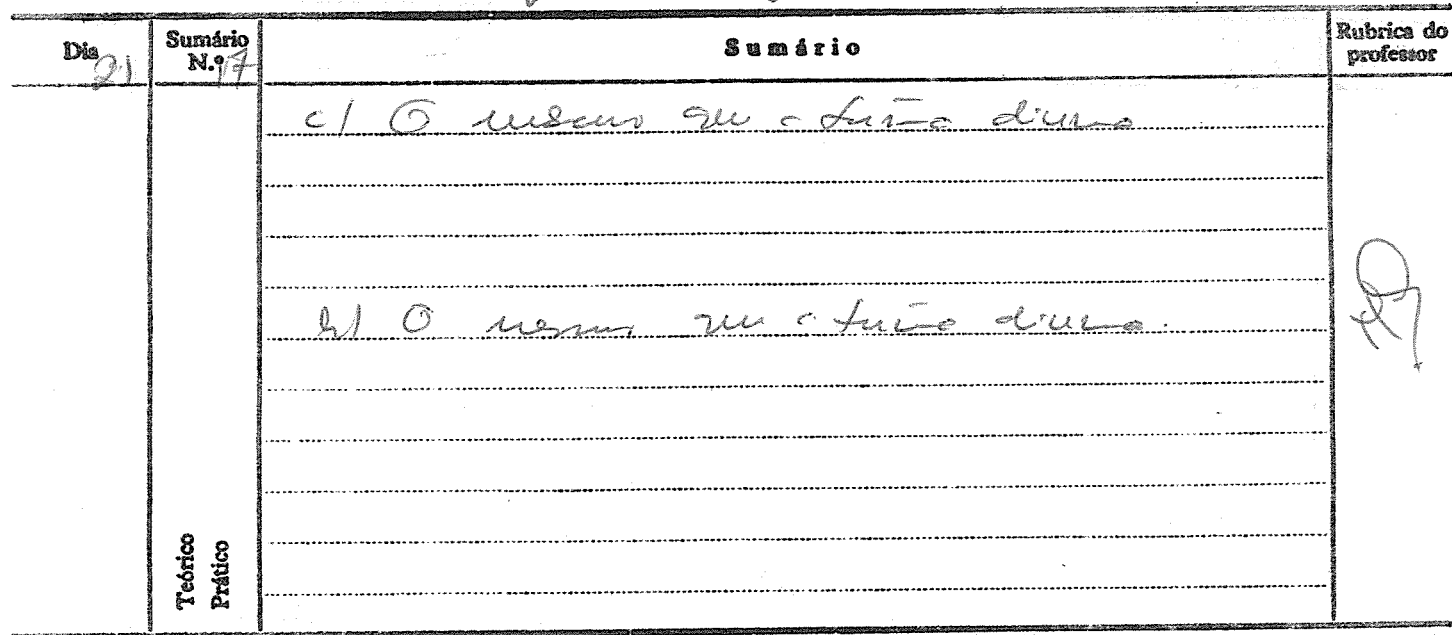 Dia 21
Sumário N.º 17
Sumário
Rubrica do professor
c) O mesmo que a turma diurna
b) O mesmo que a turma diurna.
Teórico
Prático